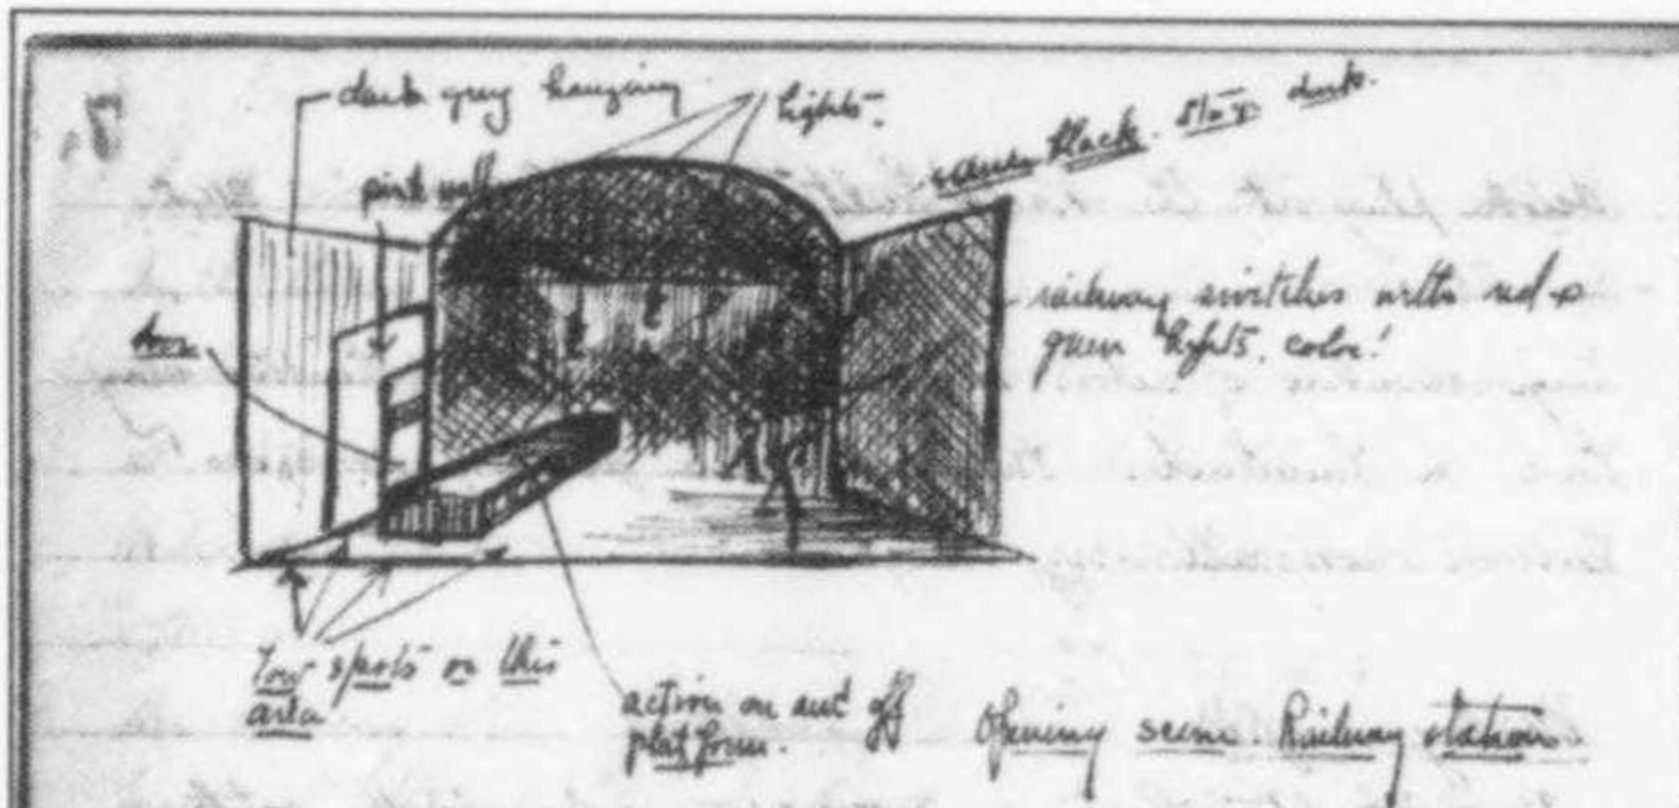 dark grey hanging
lights.
black. stays dark.
pink wall
railway switches with red &
green lights. color!
door
Low spots on this
area
action on and off
platform.
Opening scene. Railway station.